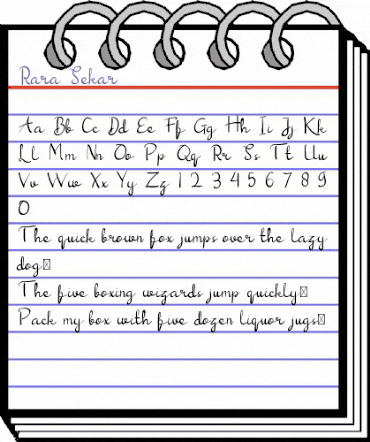 Rara Sekar
Aa Bb Cc Dd Ee Ff Gg Hh Ii Jj Kk
Ll Mm Nn Oo Pp Qq Rr Ss Tt Uu
Vv Ww Xx Yy Zz 1 2 3 4 5 6 7 8 9
0
The quick brown fox jumps over the lazy
dog▯
The five boxing wizards jump quickly▯
Pack my box with five dozen liquor jugs▯